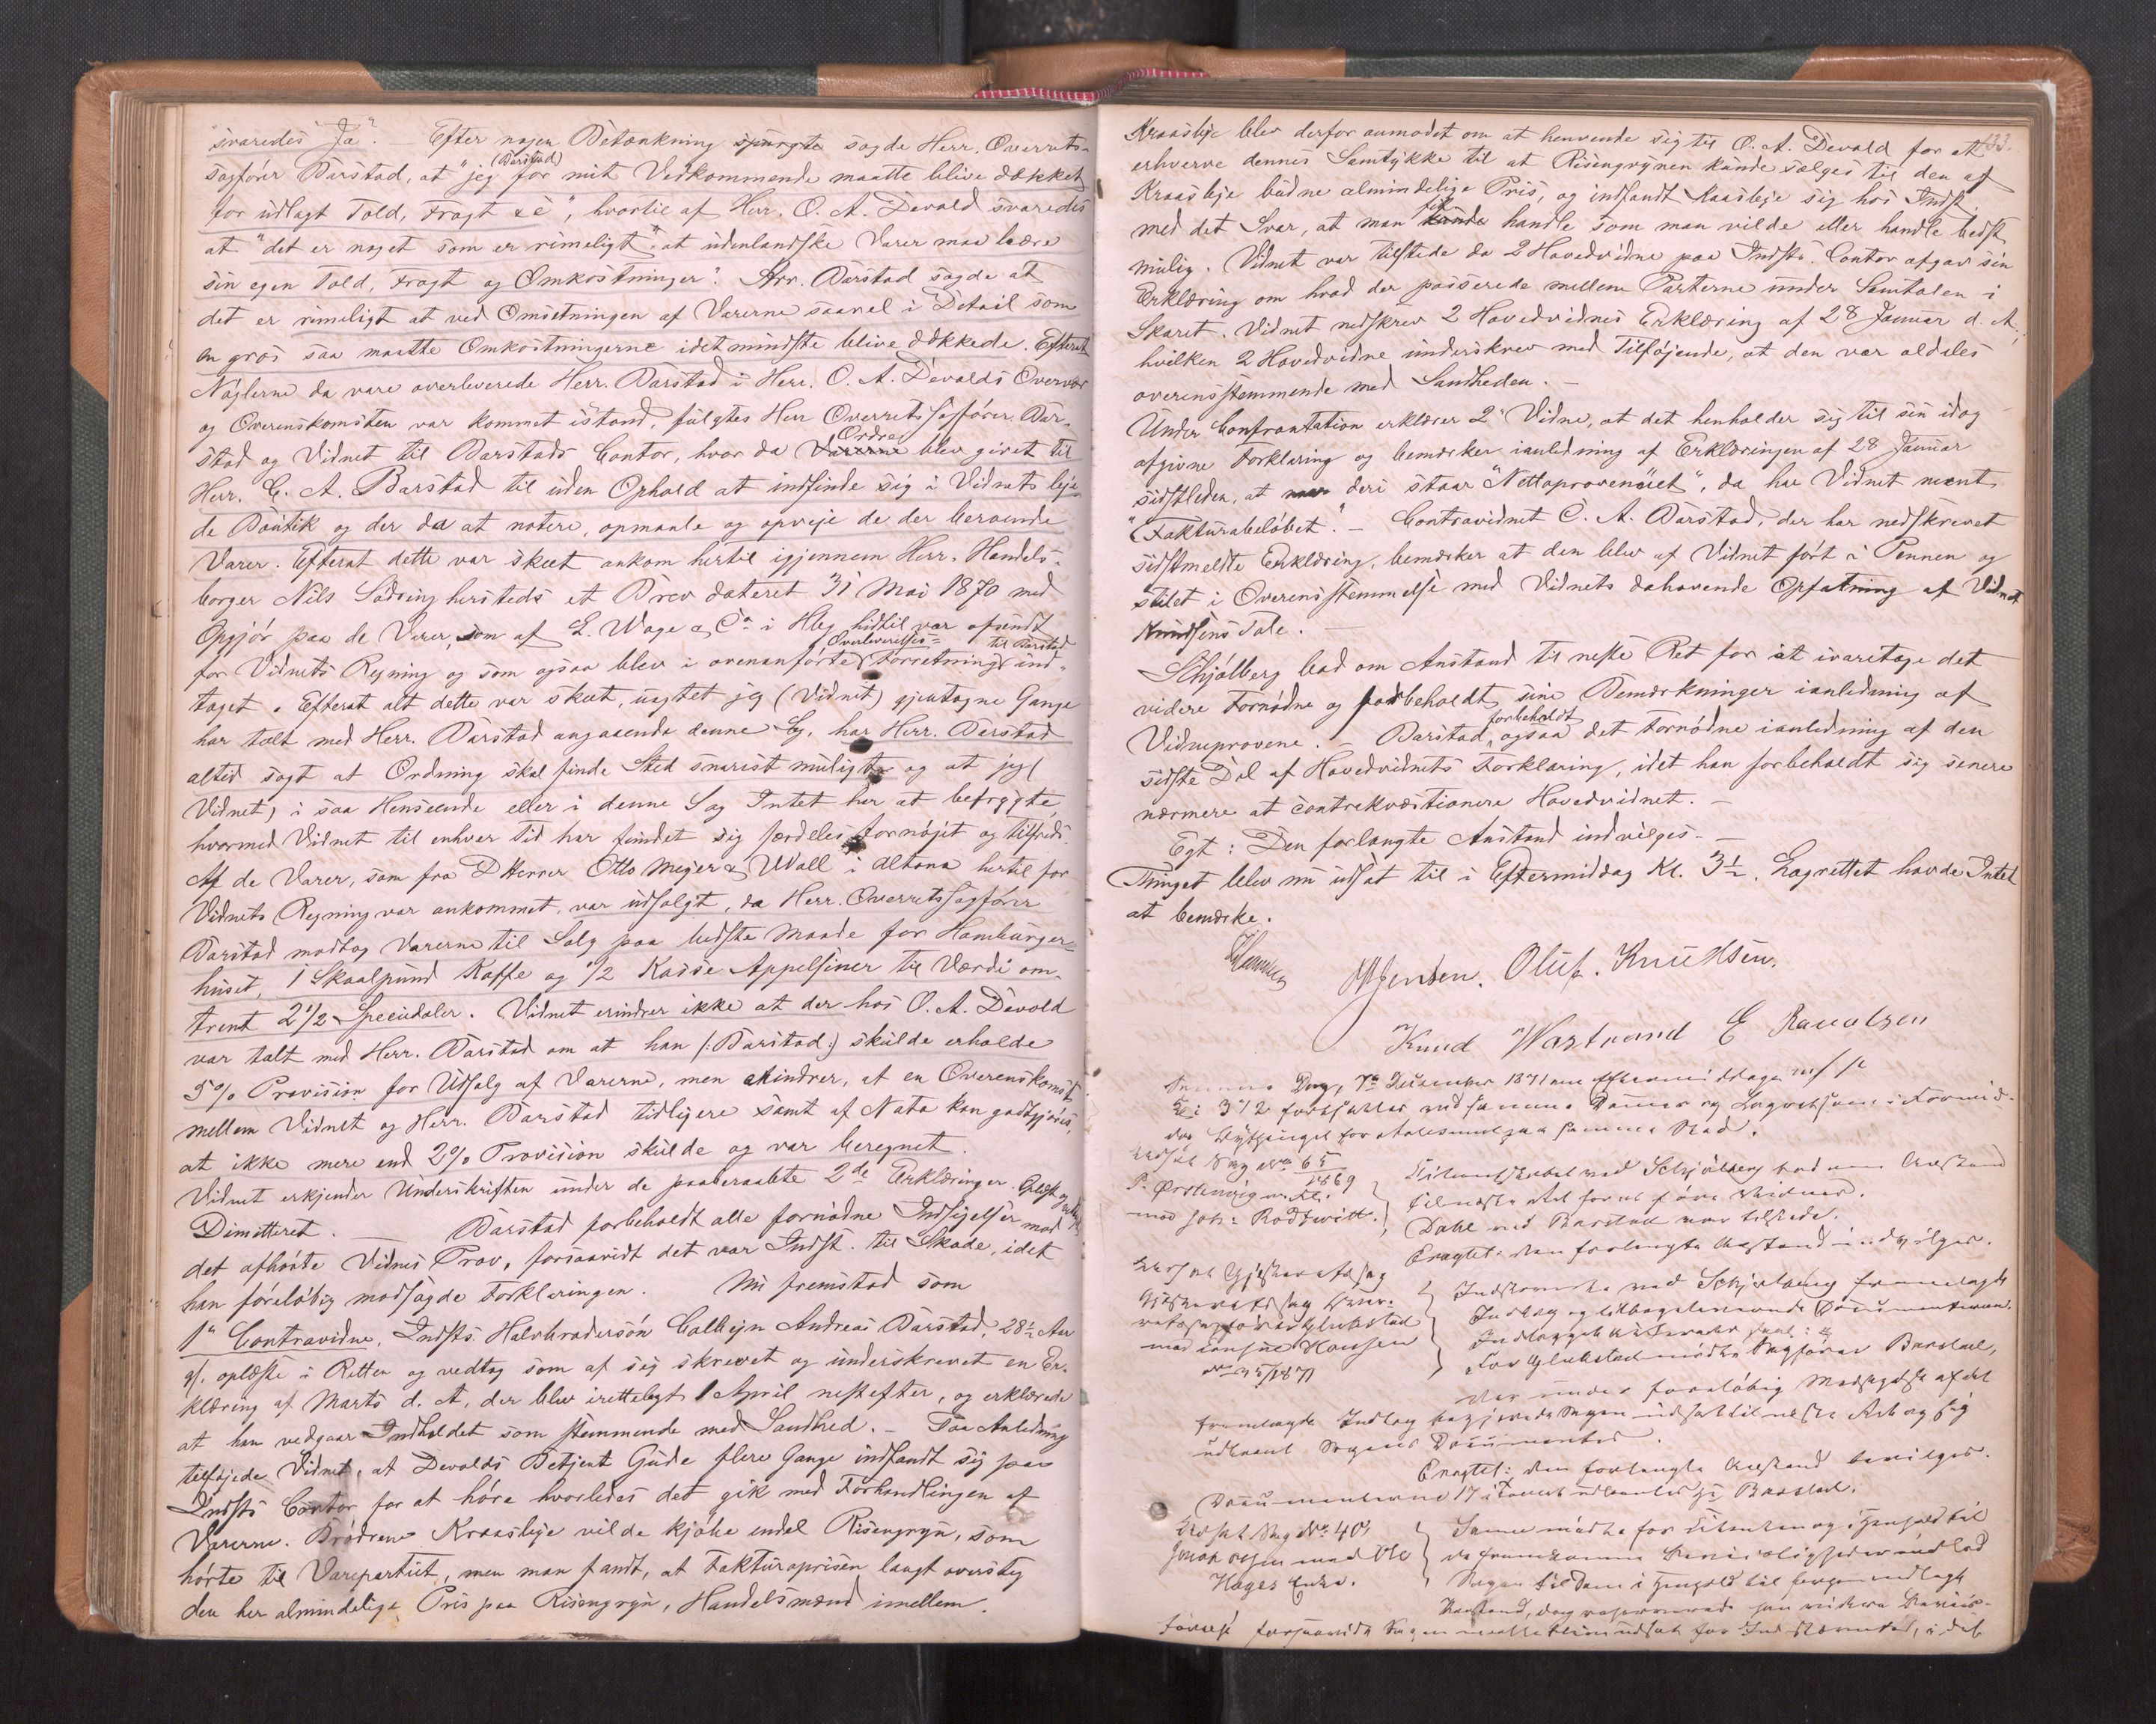 svaredes "Ja". — Efter nogen Betænkning spurgte sagde Herr. Overrets-
sagfører Barstad, at "jeg (Barstad) for mit Vedkommende maatte blive dækket
for udlagt Told, Fragt &c", hvortil af Herr. O. A. Devold svaredes
at "det er noget som er rimeligt", at udenlandske Varer maa bære
sin egen Told, Fragt og Omkostninger". Hrr. Barstad sagde at
det er rimeligt at ved Omsetningen af Varerne saavel i Detail som
en gros saa maatte Omkostningerne idetmindste blive dækkede. Efterat
Nøglerne da vare overleverede Herr. Barstad i Herr. O. A. Devolds Overvær
og Overenskomsten var kommet istand, fulgtes Herr Overretssagfører Bar-
stad og Vidnet til Barstads Contor, hvor da Varerne Ordre blev givet til
Herr. C. A. Barstad til uden Ophold at indfinde sig i Vidnets leje-
de Boutik og der da at notere, opmaale og opveje de der beroende
Varer. Efterat dette var skeet ankom hertil igjennem Herr. Handels-
borger Nils Sødring hersteds et Brev dateret 31 Mai 1870 med
Opgjør paa de Varer, som af L. Wage & Co i Hbg hidtil var afsendt
for Vidnets Regning og som ogsaa blev i ovenanførte Overleverelses- Forretning til Barstad ind-
taget. Efterat alt dette var skeet, uagtet jeg (Vidnet) gjentagne Gange
har talt med Herr. Barstad angaaende denne Sag, har Herr. Barstad
altid sagt at Ordning skal finde Sted snarest muligt og at jeg (
Vidnet) i saa Henseende eller i denne Sag Intet har at befrygte,
hvormed Vidnet til enhver Tid har fundet sig særdeles fornøjet og tilfreds.
Af de Varer, som fra DHerrer Otto Meyer & Wall i Altona hertil for
Vidnets Regning var ankommet, var udsolgt, da Herr. Overretssagfører
Barstad modtog Varerne til Salg paa bedste Maade for Hamburger-
huset, 1 Skaalpund Kaffe og 1/2 Kasse Appelsiner til Værdi om-
trent 2 1/2 Speciedaler. Vidnet erindrer ikke at der hos O. A. Devold
var talt med Herr. Barstad om at han (:Barstad:) skulde erholde
5% Provision for Udsalg af Varerne, men erindrer, at en Overenskomst
mellem Vidnet og Herr. Barstad tidligere samt af Nota kan godtgjøres,
at ikke mere end 2% Provision skulde og var beregnet.
Vidnet erkjender Underskriften under de paaberaabte 2de Erklæringer. Oplæst og vedtaget
Dimitteret. — Barstad forbeholdt alle fornødne Indsigelser mod
det afhørte Vidnes Prov, forsaavidt det var Indst. til Skade, idet
han foreløbig modsagde Forklaringen. Nu fremstod som
1ste Contravidne, Indsts. Halvbrodersøn Colbejn Andreas Barstad, 28 1/2 Aar
gl. oplæste i Retten og vedtog som af sig skrevet og underskrevet en Er-
klæring af Marts d. A, der blev irettelagt 1 April nestefter, og erklærede
at han vedgaar Indholdet som stemmende med Sandhed. — Paa Anledning
tilføjede Vidnet, at Devolds Betjent Gude flere Gange indfandt sig paa
Indsts Contor for at høre hvorledes det gik med Forhandlingen af
Varerne. Brødrene Kraasbye vilde kjøbe endel Risengryn, som
hørte til Varepartiet, men man fandt, at Fakturaprisen langt oversteg
den her almindelige Pris paa Risengryn, Handelsmænd imellem.
133.
Kraasbye blev derfor anmodet om at henvende sig til O. A. Devold for at
erhverve dennes Samtykke til at Risengrynen kunde sælges til den af
Kraasbye budne almindelige Pris, og indfandt Kraasbye sig hos Indst.
med det Svar, at man kunde fik handle som man vilde eller handle bedst
mulig. Vidnet var tilstede da 2 Hovedvidne paa Indsts. Contor afgav sin
Erklæring om hvad der passerede mellem Parterne under Samtalen i
Skaret. Vidnet nedskrev 2 Hovedvidnes Erklæring af 28 Januar d. A.,
hvilken 2 Hovedvidne underskrev med Tilføjende, at den var aldeles
overensstemmende med Sandheden. —
Under Confrontation erklærer 2' Vidne, at det henholder sig til sin idag
afgivne Forklaring og bemærker ianledning af Erklæringen af 28 Januar
sidstleden, at deri staar "Nettoprovenüet", da har Vidnet ment
"Fakturabeløbet". — Contravidnet C. A. Barstad, der har nedskrevet
sidstmeldte Erklæring, bemærker at den blev af Vidnet ført i Pennen og
stilet i Overensstemmelse med Vidnets dahavende Opfatning af Vidnet
Knudsens Tale.
Schjølberg bad om Anstand til neste Ret for at ivaretage det
videre Fornødne og forbeholdt sine Bemærkninger ianledning af
Vidneprovene. — Barstad forbeholdt ogsaa det Fornødne ianledning af den
sidste Del af Hovedvidnets Forklaring, idet han forbeholdt sig senere
nærmere at contrakvæstionere Hovedvidnet. —
Egt: Den forlangte Anstand indvilges.
Thinget blev nu udsat til i Eftermiddag Kl. 3 1/2. Lagrettet havde Intet
at bemærke.
Jensen. Oluf. Knudtsen.
Knud Wastrand E
Samme Dag, 7de December 1871 om Eftermiddagen
Kl. 3 1/2 fortsattes ved samme Dommer og Lagrettsmænd i Formid-
dag Bythinget for paa samme Sted.
Sag No 65/1869
mod Rodtwitt.
ved Schjølberg bad om Anstand
til næste Ret for at føre Vidner.
Dahl ved Barstad var tilstede.
Eragtet: den forlangte Anstand indvilges.
Gjesteretssag
mod Hansen
No 35/1871
Indstevnte ved Schjølberg fremlagde
Indlæg og tilbageleverede Documenterne.
For Glückstad mødte Sagfører Barstad,
der under foreløbig Modsigelse af det
fremlagte Indlæg begjærede Sagen udsat til neste Ret og sig
udlaant Sagens Documenter.
Eragtet: den forlangte Anstand bevilges.
Documenterne udlaantes Barstad.
Sag No. 40/
mod Ole
Hages Enke.
Samme mødte for Citanten og i Henhold til